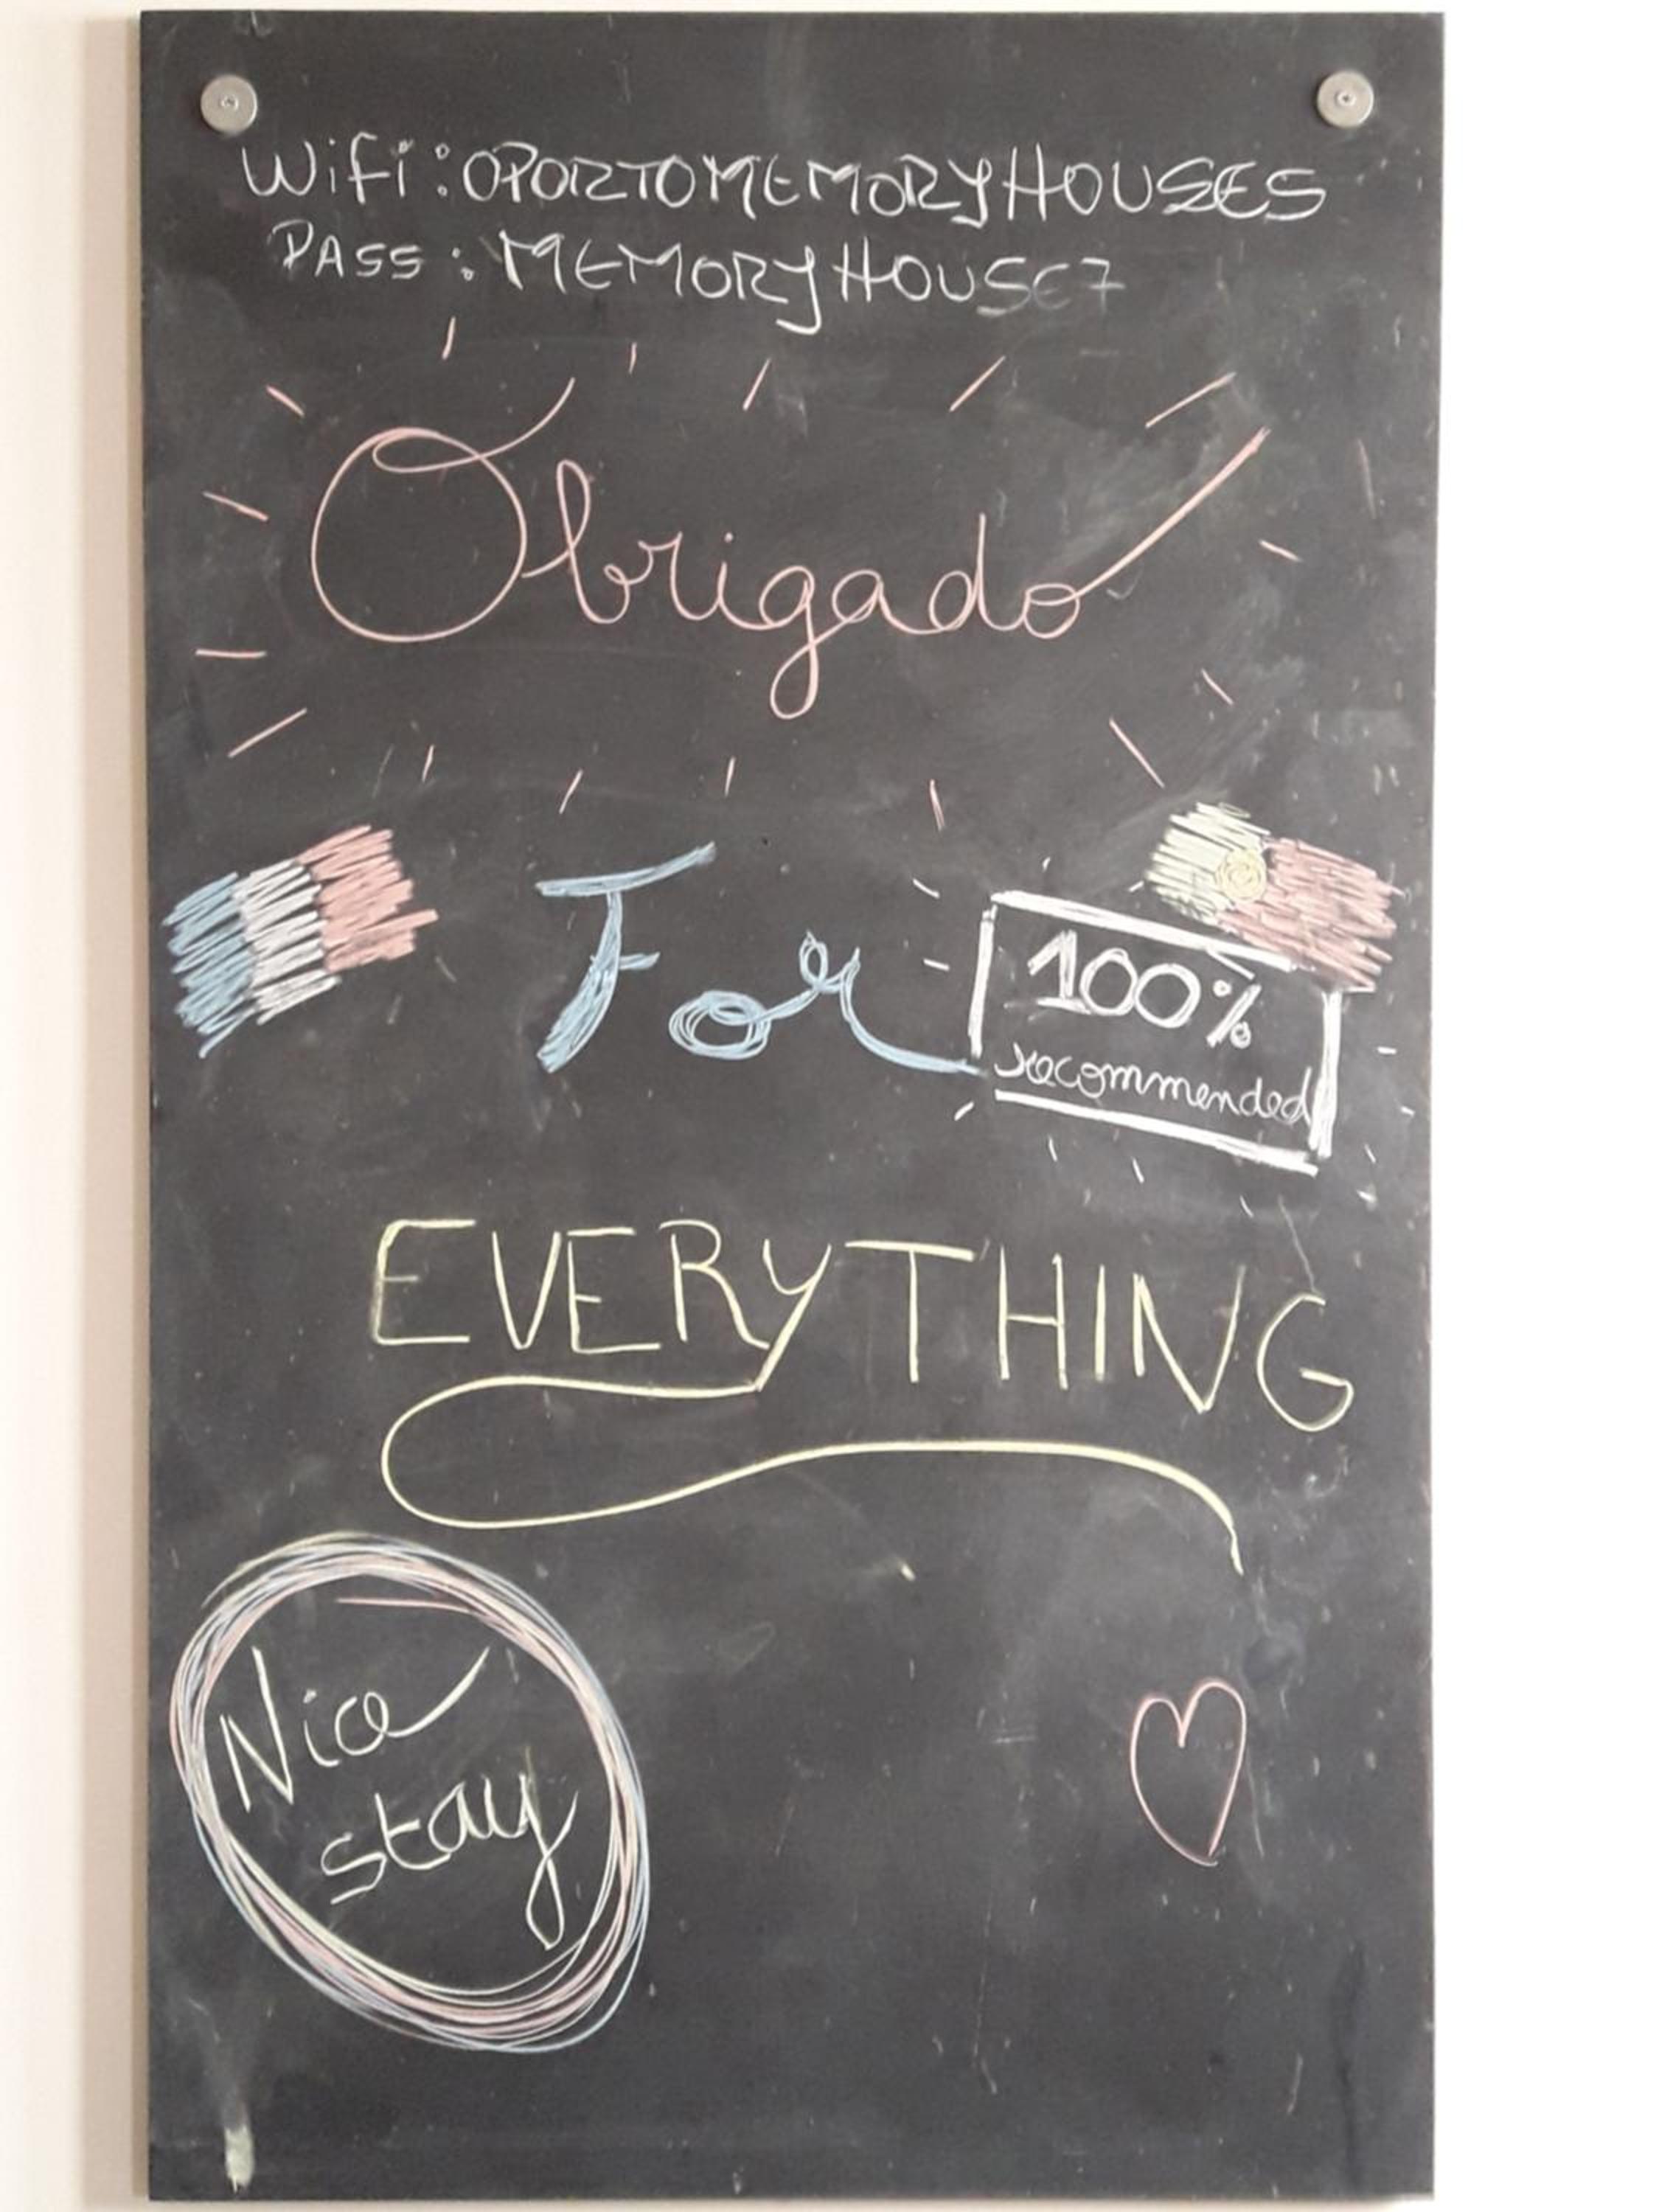 Wifi: OPORTOMEMORYHOUSES
PASS: MEMORYHOUSE7
Obrigado
For
100%
recommended
EVERYTHING
Nice
stay